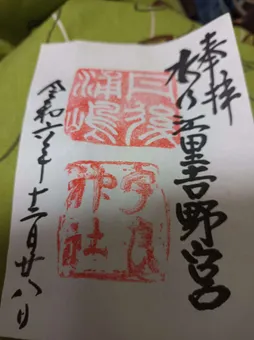 奉拝
水乃江里吉野宮
丹後
浦嶋
宇良
神社
令和六年十二月廿八日